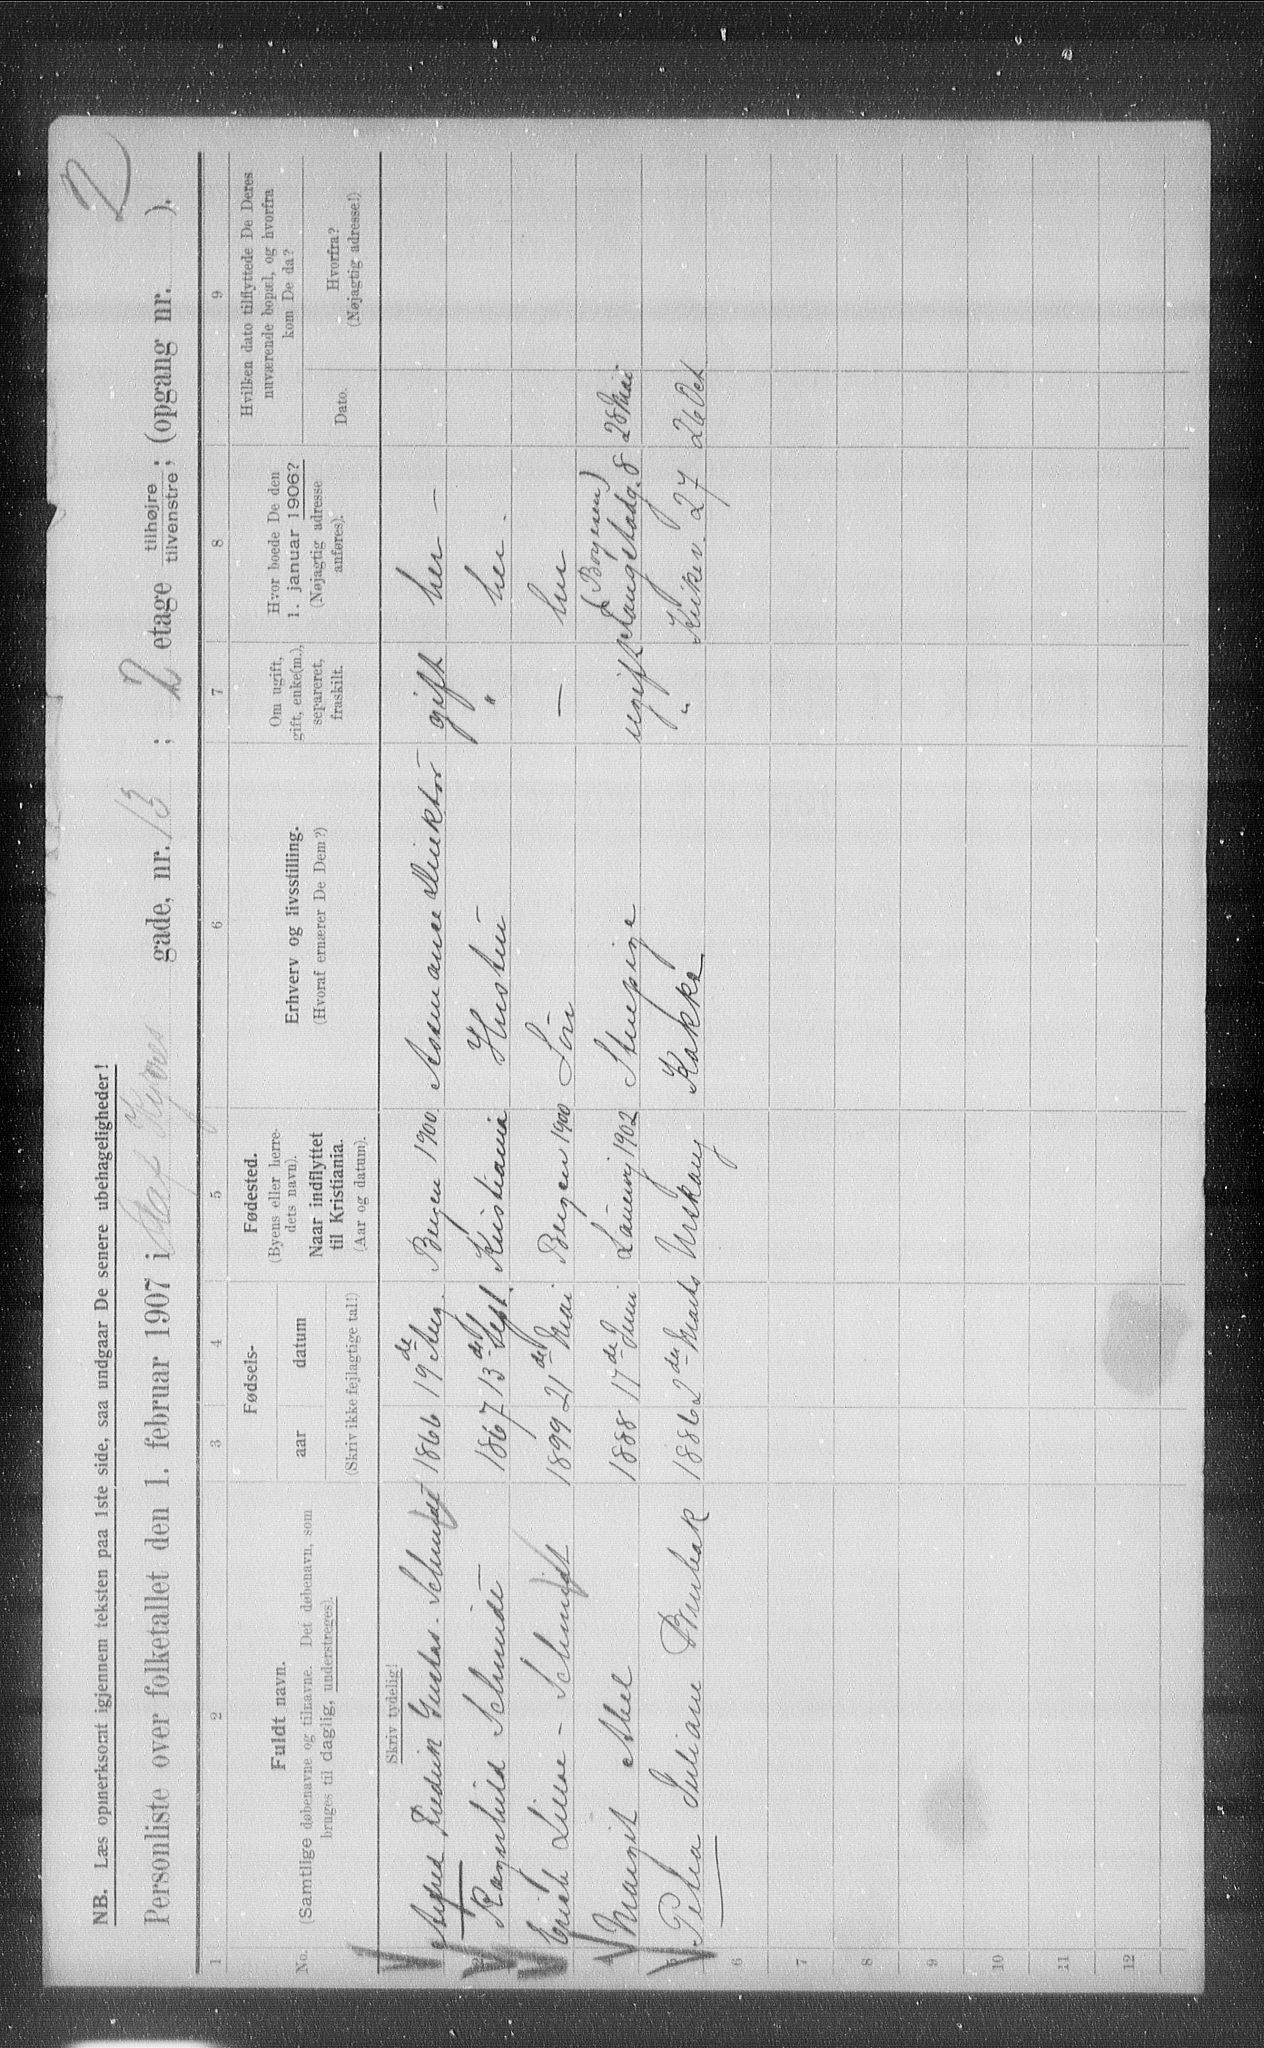 NB. Læs opmerksomt igjennem teksten paa 1ste side, saa undgaar De senere ubehageligheder!
2
Personliste over folketallet den 1. februar 1907 i Olaf Kyrres gade, nr. 13 ; 2 etage tilhøjre tilvenstre; (opgang nr. ).
1 2 3 4 5 6 7 8 9
No.
Fuldt navn.
(Samtlige døbenavne og tilnavne. Det døbenavn, som
bruges til daglig, understreges).
Fødsels-
aar datum
(Skriv ikke fejlagtige tal!)
Fødested.
(Byens eller herre-
dets navn).
Naar indflyttet
til Kristiania.
(Aar og datum).
Erhverv og livsstilling.
(Hvoraf ernærer De Dem?)
Om ugift,
gift, enke(m.),
separeret,
fraskilt.
Hvor boede De den
1. januar 1906?
(Nøjagtig adresse
anføres).
Hvilken dato tilflyttede De Deres
nuværende bopæl, og hvorfra
kom De da?
Dato.
Hvorfra?
(Nøjagtig adresse!)
Skriv tydelig!
Fredrik Gustav Schmidt 1866 19de Aug. Bergen 1900 Direktør gift her –
2 Ragnhild Schmidt 1867 13de Sept. Kristiania Hustru " her.
Schmidt 1899 21de Mai Bergen 1900 Søn — her
4 Margit Abel 1888 17de Juni 1902 ugift (Boysen) 8 28 Mai
5 Petra Juliane 1886 2den Marts Urskoug Kokke " Kirkev. 27 26 Oct
6
7
8
9
10
11
12